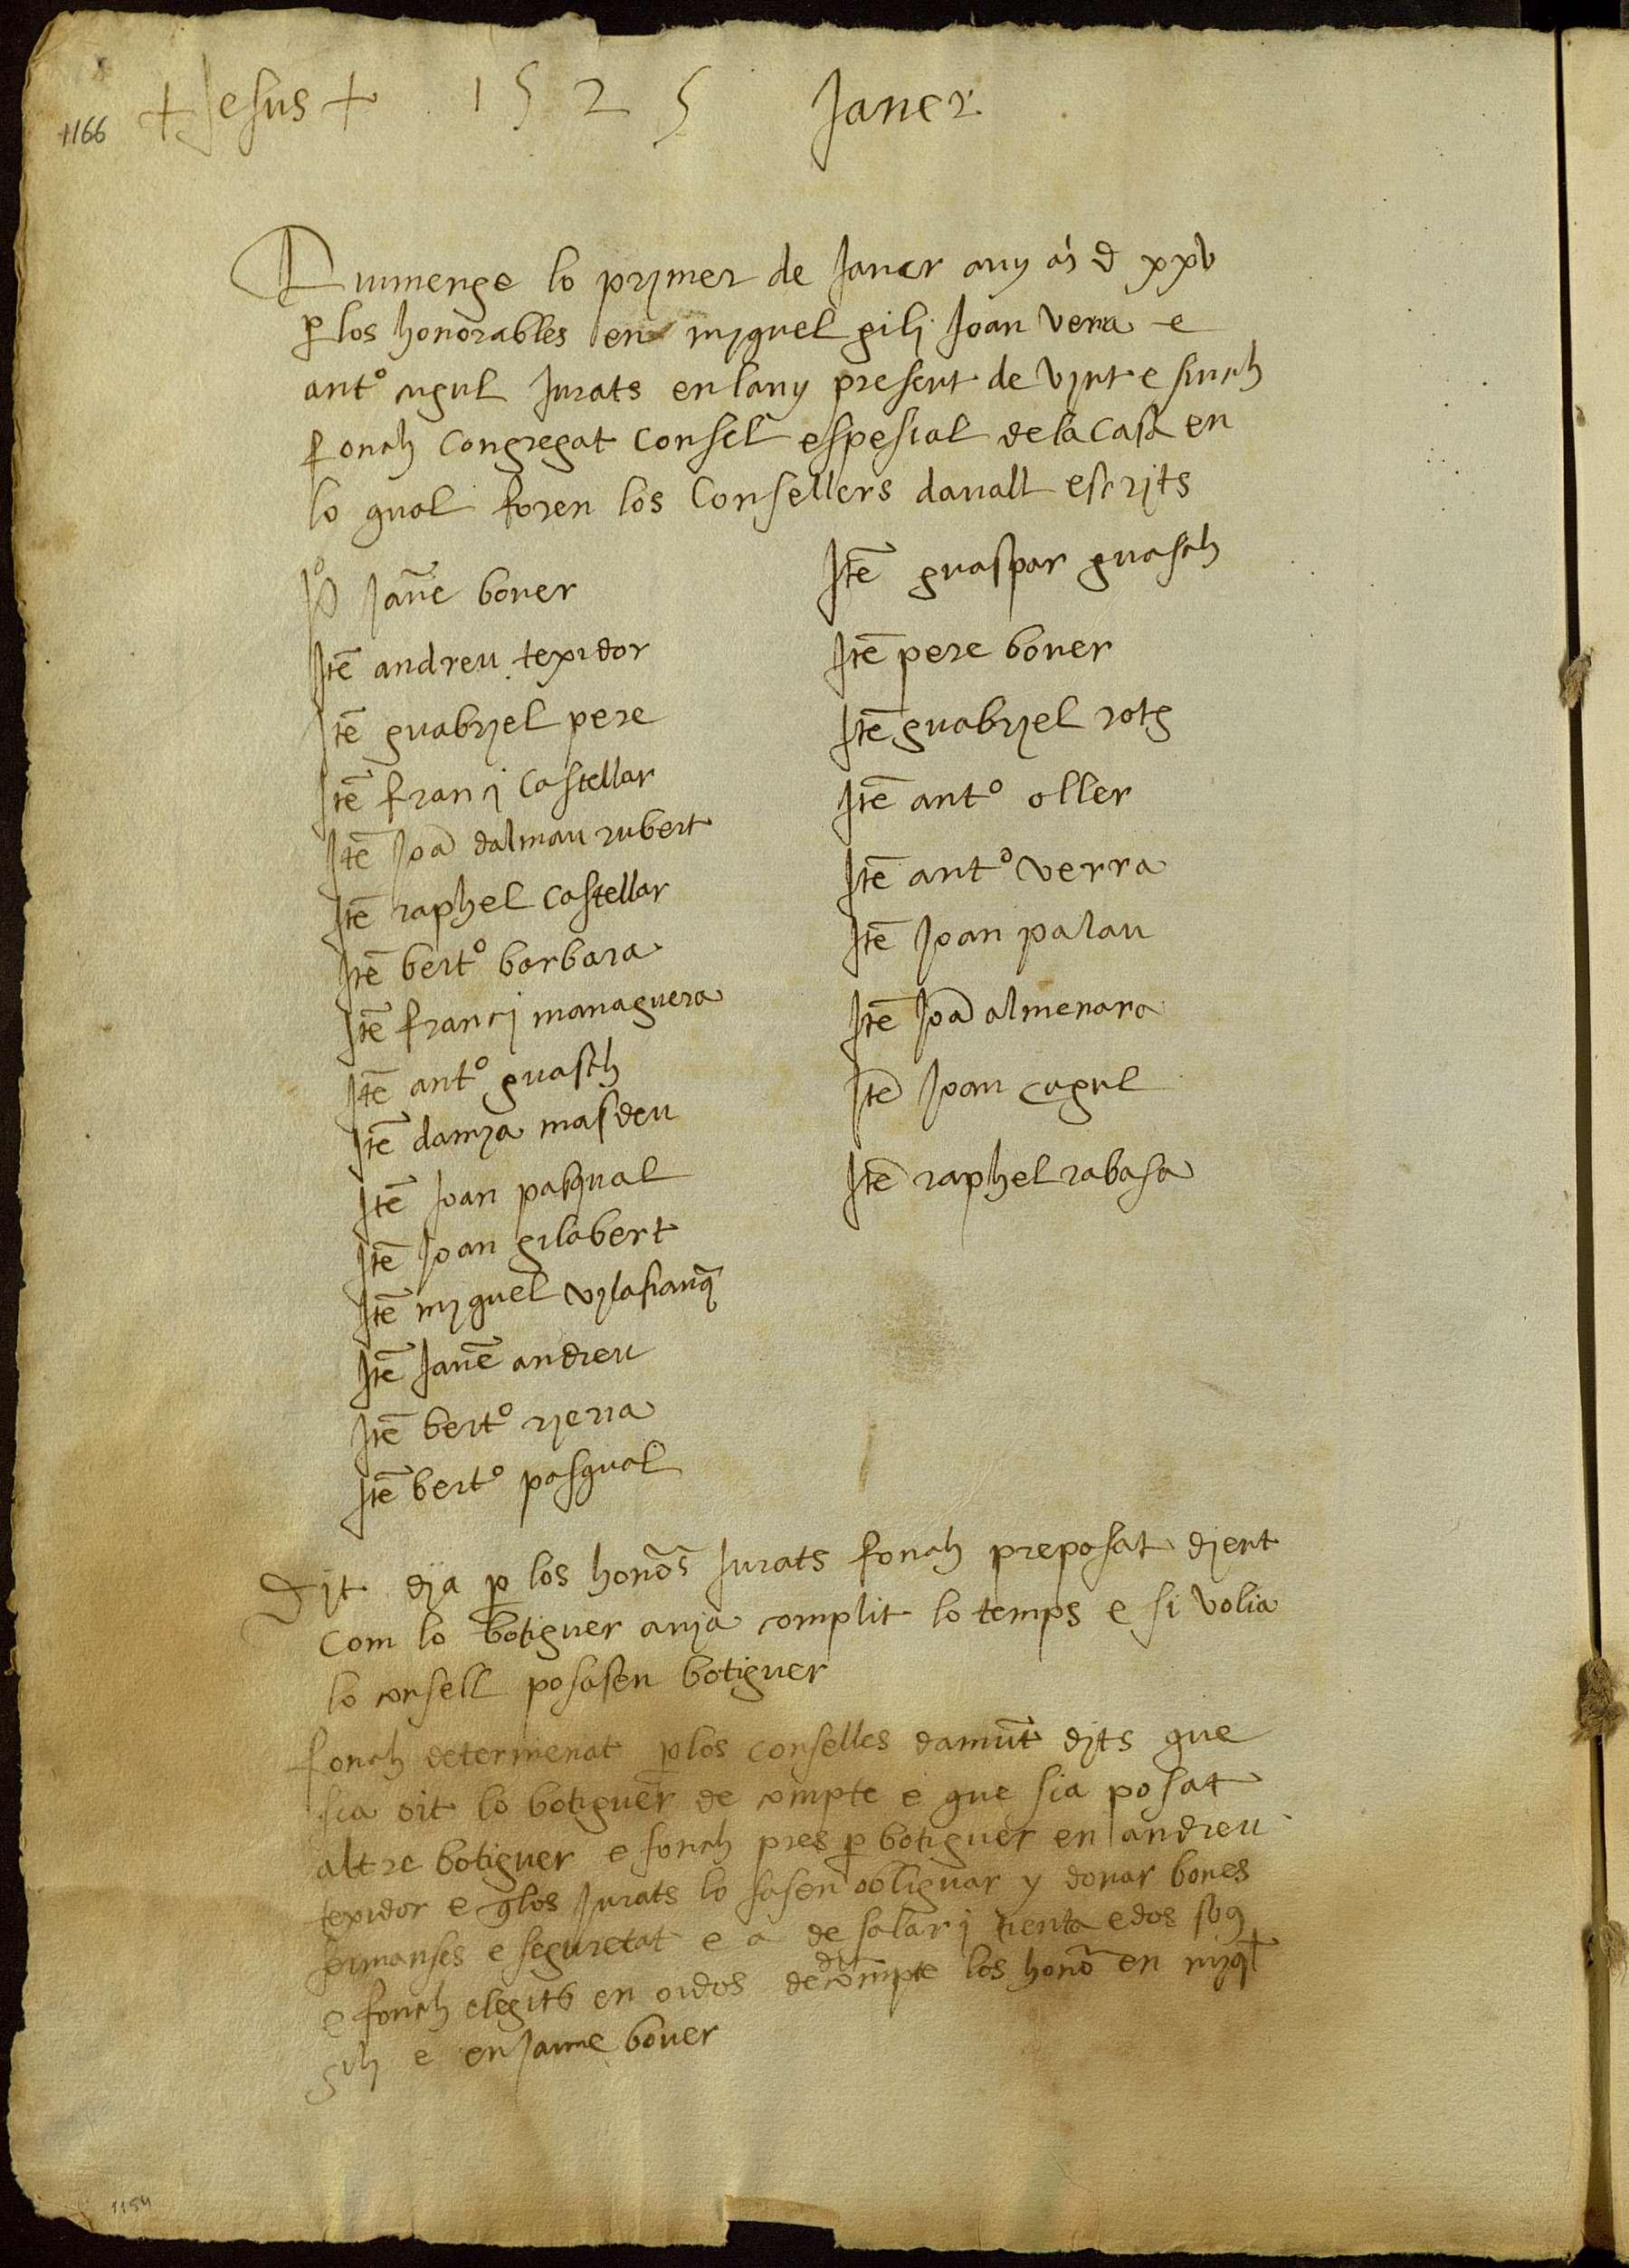 + Jesus + 1525 Janer
1166
Diumenge lo prjmer de Janer any m d xxv
p los honorables en mjquel gilj Joan verra e
antº cugul Jurats en lany present de vjnt e sinch
fonch congregat consel espesial de la casa en
lo qual foren los consellers davall escrjts
Pº Jaume bover
Itē andreu texidor
Itē guabrjel pere
Itē franci castellar
Itē Joā dalmau rubert
Itē raphel castellar
Itē bertº barbara
Itē franci managuera
Itē antº guasch
Itē damja masdeu
Itē Joan pasqual
Itē Joan gilabert
Itē mjquel vjlafranq
Itē Jaume andreu
Itē bertº rjerra
Itē bertº pasqual
Itē guaspar guasch
Itē pere bover
Itē guabrjel rotg
Itē antº oller
Itē antº verra
Itē Joan palau
Itē Joā almenara
Itē Joan cogul
Itē raphel rabasa
Djt dja p los honōs Jurats fonch preposat djent
com lo botiguer avja complit lo temps e si volia
lo consell posasen botiguer
fonch determenat p los conselles damūt djts que
sia oit lo botiguer de compte e que sia posat
altre botiguer e fonch pres p botiguer en andreu
texidor e q los Jurats lo fasen obliguar y donar bones
fermanses e seguretat e a de salari trenta e dos sous
e fonch elegits en oidos de dit compte los honō en mjql
gilj e en Jaume bover
1154